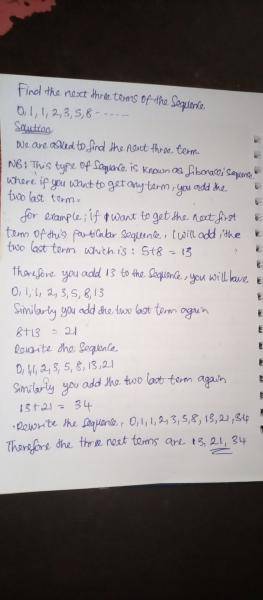 Find the next three terms of the Sequence
0, 1, 1, 2, 3, 5, 8 - - - - - -
Solution
We are asked to find the next three term
NB: This type of Sequence is Known as fibonacci sequence
where if you want to get any term, you add the
two last term.
for example; if I want to get the next first
term of this particular sequence, I will add the
two last term which is: 5+8 = 13
Therefore you add 13 to the Sequence, you will have
0, 1, 1, 2, 3, 5, 8, 13
Similarly you add the two last term again
8+13 = 21
Rewrite the Sequence
0, 1, 1, 2, 3, 5, 8, 13, 21
Similarly you add the two last term again
13+21 = 34
Rewrite the Sequence, 0, 1, 1, 2, 3, 5, 8, 13, 21, 34
Therefore the three next terms are 13, 21, 34